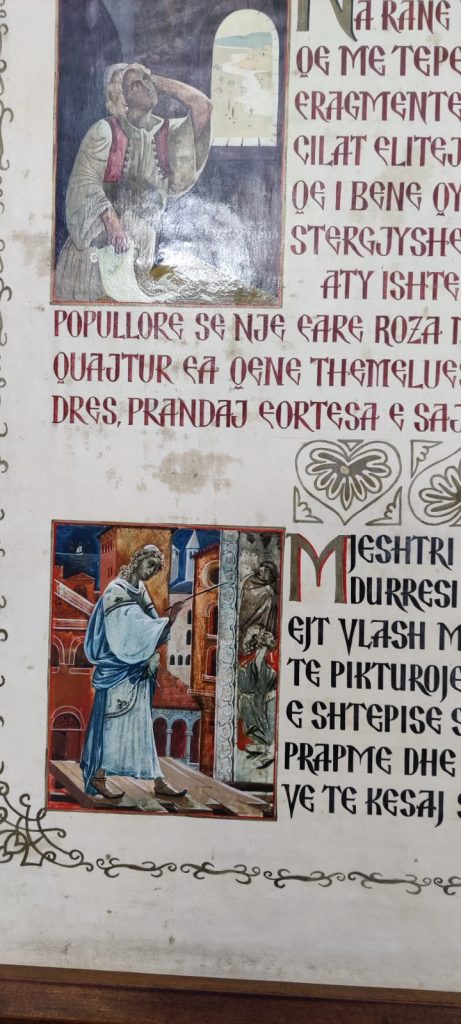 NA RANE
QE ME TEPE
FRAGMENTE
CILAT FLITEJ
QE I BENE QY
STERGJYSHE
ATY ISHTE
POPULLORE SE NJE FARE ROZA
QUAJTUR FA QENE THEMELUES
DRES, PRANDAJ FORTESA E SAJ
MJESHTRI
DURRESI
EJT VLASH M
TE PIKTUROJE
E SHTEPISE S
PRAPME DHE
VE TE KESAJ S